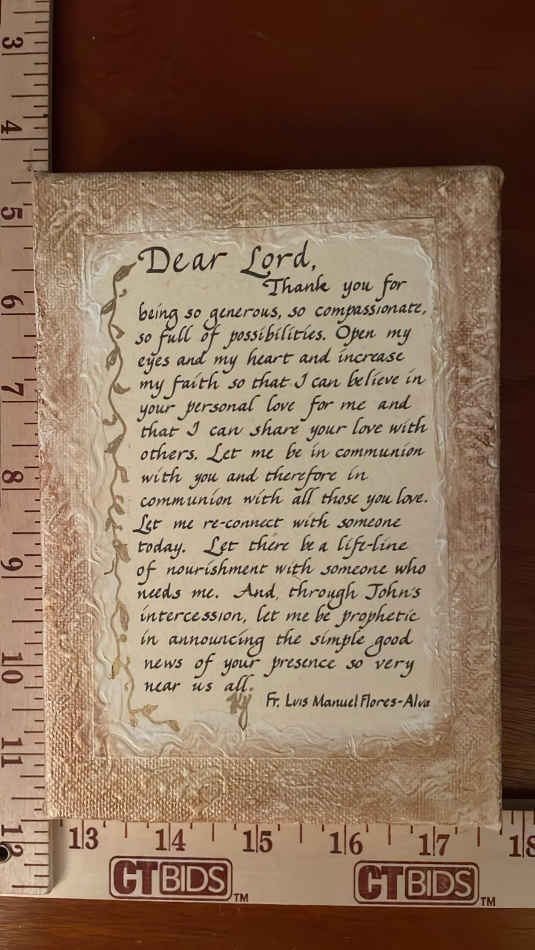 Dear Lord,
Thank you for
being so generous, so compassionate,
so full of possibilities. Open my
eyes and my heart and increase
my faith so that I can believe in
your personal love for me and
that I can share your love with
others. Let me be in communion
with you and therefore in
communion with all those you love.
Let me re-connect with someone
today. Let there be a life-line
of nourishment with someone who
needs me. And, through John's
intercession, let me be prophetic
in announcing the simple good
news of your presence so very
near us all.
Fr. Luis Manuel Flores-Alva
3
4
5
6
7
8
9
10
11
12
13 14 15 16 17 18
CTBIDS™ CTBIDS™